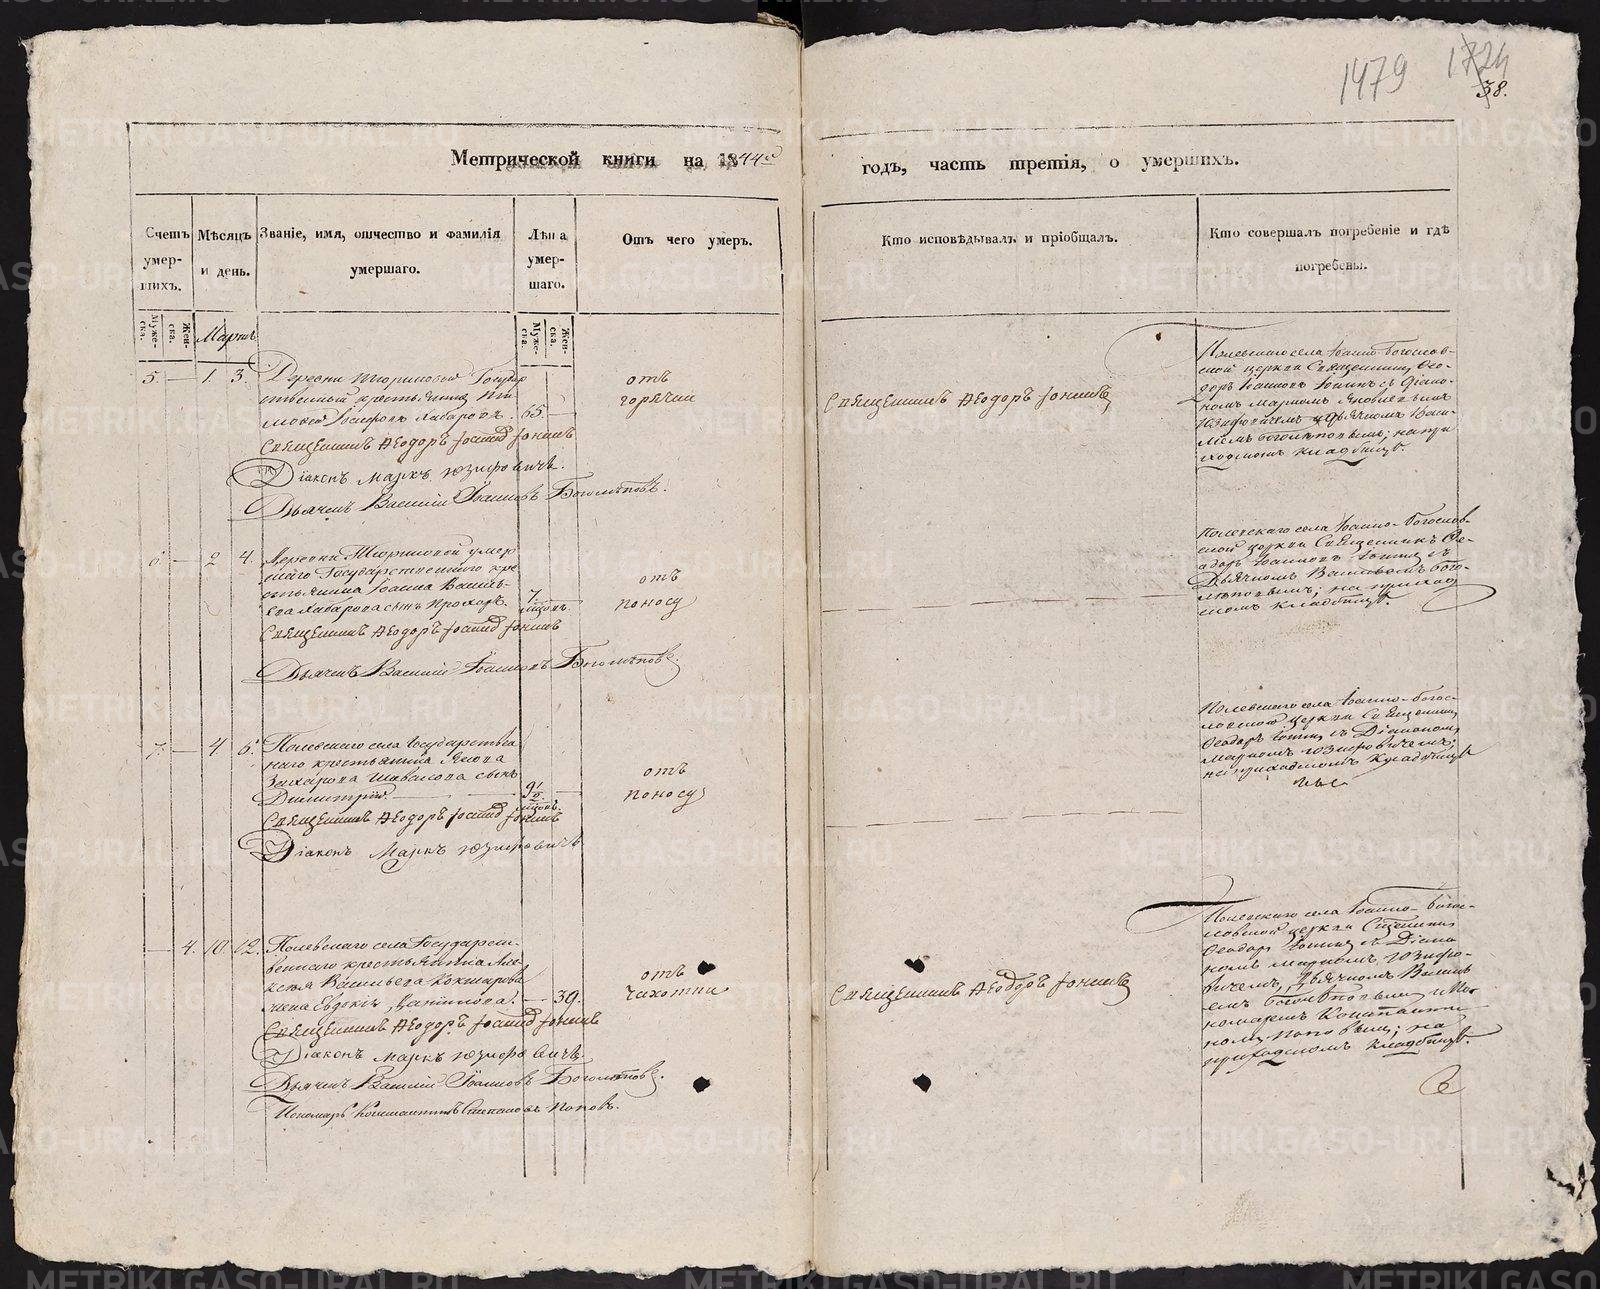 1479 1724
38.
Метрической книги на 1844й годъ, часть третія, о умершихъ.
Счетъ умер-шихъ.
Мѣсяцъ и день.
Званіе, имя, отчество и фамилія умершаго.
Лѣта умер-шаго.
Отъ чего умеръ.
Кто исповѣдывалъ и пріобщалъ.
Кто совершалъ погребеніе и гдѣ погребены.
Муже-ска.
Жен-ска.
Мартъ
Муже-ска.
Жен-ска.
5. — 1. 3.
Деревни Государ
ственный крестьянинъ
Хабаровъ. 65. —
Священникъ Ѳеодоръ Іоаннов Іонинъ
Діаконъ Маркъ Юзифовичь.
Дьячекъ Василій Іоанновъ Боголѣповъ.
отъ
горячки
Священникъ Ѳеодоръ Іонинъ
Полевскаго села Іоанно-Богослов-
ской церкви Священникъ Ѳео-
доръ Іоанновъ Іонинъ съ Діако-
номъ Маркомъ
Юзифовичемъ и дьячкомъ Васи-
ліемъ Боголѣповымъ; на при
ходскомъ кладбищѣ.
6. — 2 4.
Деревни умер
шаго Государственнаго кре
стьянина Іоанна Василь-
ева Хабарова сынъ Прохоръ. 7.
Священникъ Ѳеодоръ Іоаннов Іонинъ
Дьячекъ Василій Іоанновъ Боголѣповъ.
отъ
поносу
Полевскаго села Іоанно-Богослов-
ской церкви Священникъ Ѳе-
одоръ Іоанновъ Іонинъ съ
Дьячкомъ Василіемъ Бого-
лѣповымъ; на приход
скомъ кладбищѣ.
7. — 4 6.
Полевскаго села Государствен
наго крестьянина Якова
Захарова сынъ
Димитрій. 9½
Священникъ Ѳеодоръ Іоаннов Іонинъ
Діаконъ Маркъ Юзифовичь
отъ
поносу
Полевскаго села Іоанно-Богос-
ловской церкви Священникъ
Ѳеодоръ Іонинъ съ Діакономъ
Маркомъ Юзифовичемъ;
на приходскомъ кладбищѣ
— 4. 10. 12.
Полевскаго села Государст-
веннаго крестьянина Але
ксѣя Васильева Кокшарова
жена Евдокія Данилова. — 39.
Священникъ Ѳеодоръ Іоаннов Іонинъ
Діаконъ Маркъ Юзифовичь
Дьячекъ Василій Іоанновъ Боголѣповъ.
Пономарь Константинъ Степановъ Поповъ.
отъ
чахотки
Священникъ Ѳеодоръ Іонинъ
Полевскаго села Іоанно-Богос-
ловской церкви Священникъ
Ѳеодоръ Іонинъ съ Діако
номъ Маркомъ Юзифо-
вичемъ, Дьячкомъ Васил
емъ Боголѣповымъ и По
номаремъ Константи
номъ Поповымъ; на
приходскомъ кладбищѣ.
METRIKI.GASO-URAL.RU